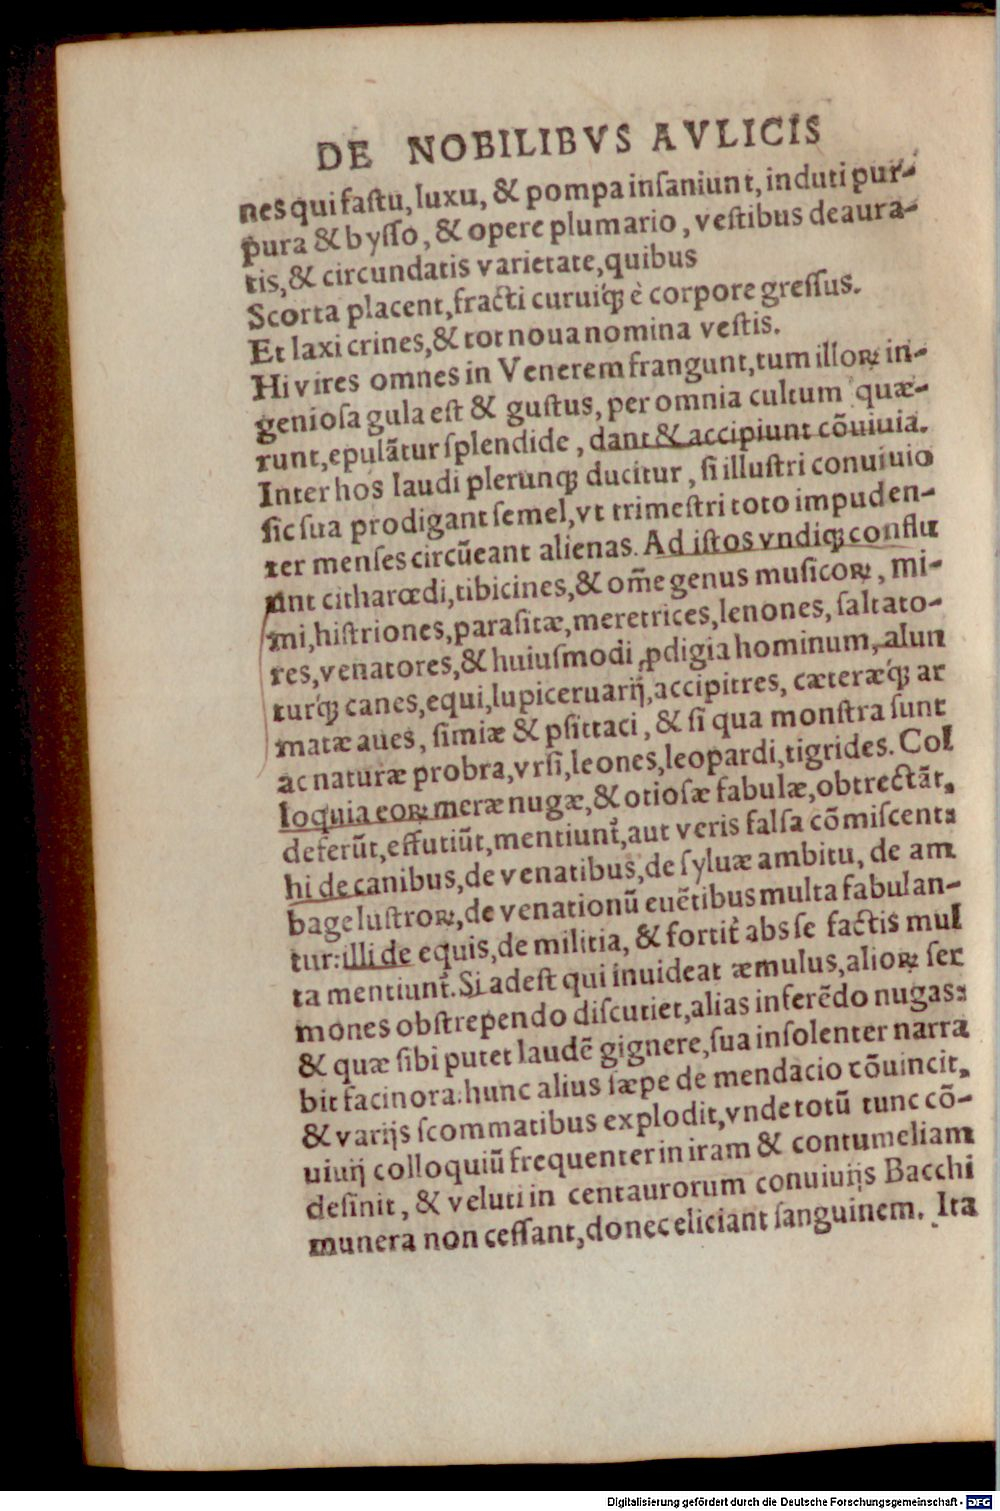 DE NOBILIBVS AVLICIS
nes qui faſtu, luxu, & pompa inſaniunt, induti pur-
pura & byſſo, & opere plumario, veſtibus deaura-
tis, & circundatis varietate, quibus
Scorta placent, fracti curuiq́ꝫ è corpore greſſus.
Et laxi crines, & tot noua nomina veſtis.
Hi vires omnes in Venerem frangunt, tum illoꝝ in-
genioſa gula eſt & guſtus, per omnia cultum quæ-
runt, epulãtur ſplendide, dant & accipiunt cõuiuia.
Inter hos laudi plerunqꝫ ducitur, ſi illuſtri conuiuio
ſic ſua prodigant ſemel, vt trimeſtri toto impuden-
ter menſes circũeant alienas. Ad iſtos vndiqꝫ conflu
unt citharœdi, tibicines, & om̃e genus muſicoꝝ, mi-
mi, hiſtriones, paraſitæ, meretrices, lenones, ſaltato-
res, venatores, & huiuſmodi ꝓdigia hominum, alun
turq́ꝫ canes, equi, lupiceruarij, accipitres, cæteræq́ꝫ ar
matæ aues, ſimiæ & pſittaci, & ſi qua monſtra ſunt
ac naturæ probra, vrſi, leones, leopardi, tigrides. Col
loquia eoꝝ meræ nugæ, & otioſæ fabulæ, obtrectãt,
deferũt, effutiũt, mentiunt᷑, aut veris falſa cõmiſcent:
hi de canibus, de venatibus, de ſyluæ ambitu, de am
bage luſtroꝝ, de venationũ euẽtibus multa fabulan-
tur: illi de equis, de militia, & fortit᷑ abs ſe factis mul
ta mentiunt᷑. Si adeſt qui inuideat æmulus, alioꝝ ſer
mones obſtrependo diſcutiet, alias inferẽdo nugas:
& quæ ſibi putet laudẽ gignere, ſua inſolenter narra
bit facinora: hunc alius ſæpe de mendacio cõuincit,
& varijs ſcommatibus explodit, vnde totũ tunc cõ-
uiuij colloquiũ frequenter in iram & contumeliam
deſinit, & veluti in centaurorum conuiuijs Bacchi
munera non ceſſant, donec eliciant ſanguinem. Ita
Digitalisierung gefördert durch die Deutsche Forschungsgemeinschaft - DFG